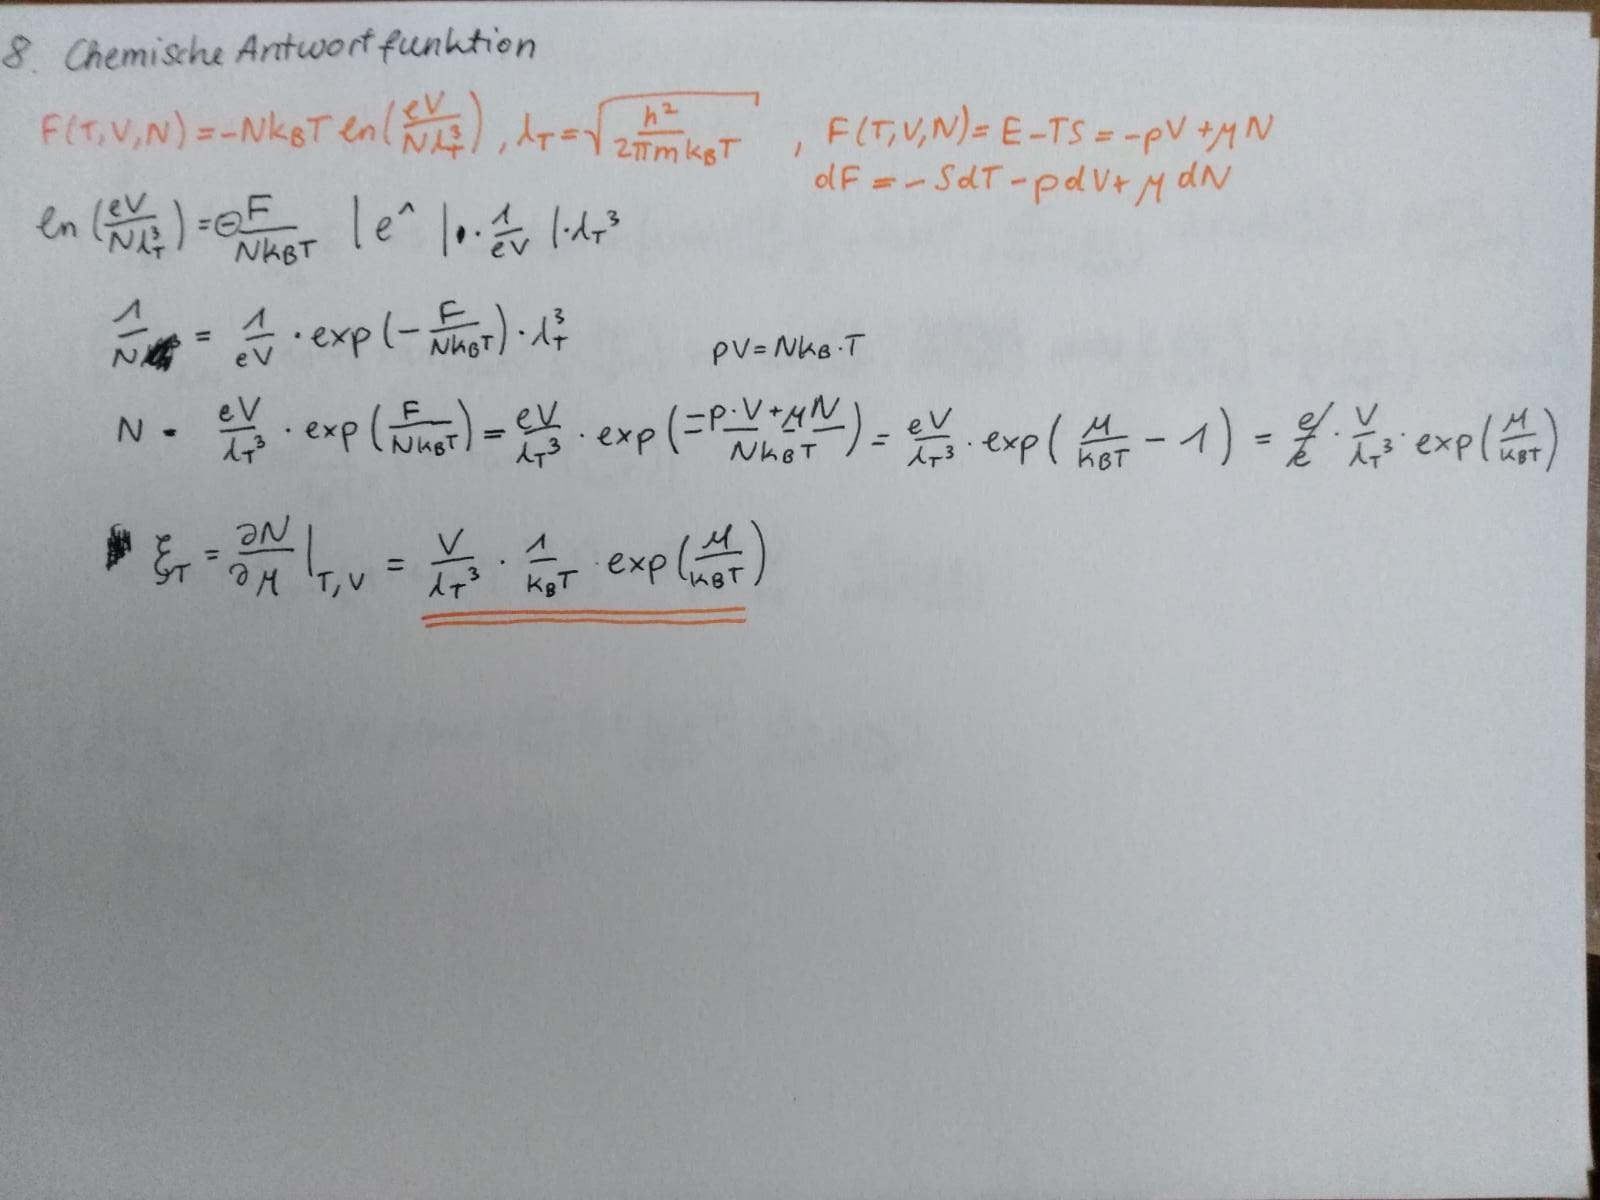 8. Chemische Antwortfunktion
F(T,V,N) = -Nk_BT ln(eV/(Nλ_T³)), λ_T = √(h²/(2πmk_BT)), F(T,V,N) = E-TS = -pV+μN
dF = -SdT-pdV+μdN
ln(eV/(Nλ_T³)) = ⊖F/(Nk_BT) | e^ | · 1/(eV) | ·λ_T³
1/N = 1/(eV) · exp(-F/(Nk_BT)) · λ_T³ pV=Nk_B·T
N = eV/λ_T³ · exp(F/(Nk_BT)) = eV/λ_T³ · exp((-p·V+μN)/(Nk_BT)) = eV/λ_T³ · exp(μ/(k_BT) - 1) = e/e · V/λ_T³ · exp(μ/(k_BT))
ξ_T = ∂N/∂μ|_T,V = V/λ_T³ · 1/(k_BT) · exp(μ/(k_BT))